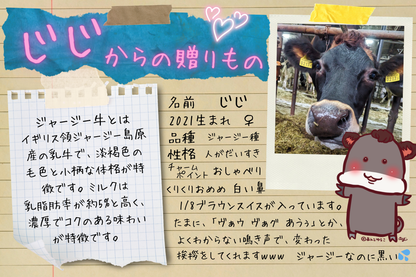 じじからの贈りもの
ジャージー牛とは
イギリス領ジャージー島原
産の乳牛で、淡褐色の
毛色と小柄な体格が特
徴です。ミルクは
乳脂肪率が約5%と高く、
濃厚でコクのある味わい
が特徴です。
名前 じじ
2021生まれ ♀
品種 ジャージー種
性格 人がだいすき
チャーム
ポイント おしゃべり
くりくりおめめ 白い鼻
1/8ブラウンスイスが入っています。
たまに、「ヴァウ ヴァグ あうぅ」とか、
よくわからない鳴き声で、変わった
挨拶をしてくれますwww ジャージーなのに黒い💦